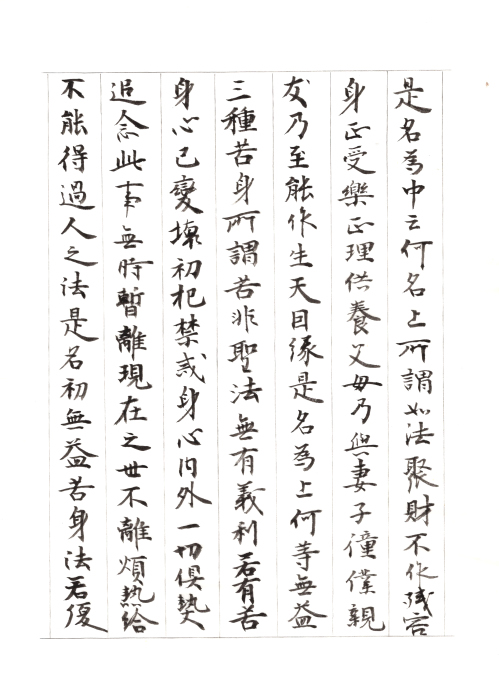 是名為中云何名上所謂如法聚財不作殘害
身正受樂正理供養父母乃與妻子僮僕親
友乃至能作生天因緣是名為上何等無益
三種苦身所謂苦非聖法無有義利若有苦
身心已變壞初犯禁戒身心內外一切俱熱
追念此事無時暫離現在之世不離煩熱給
不能得過人之法是名初無益苦身法若復